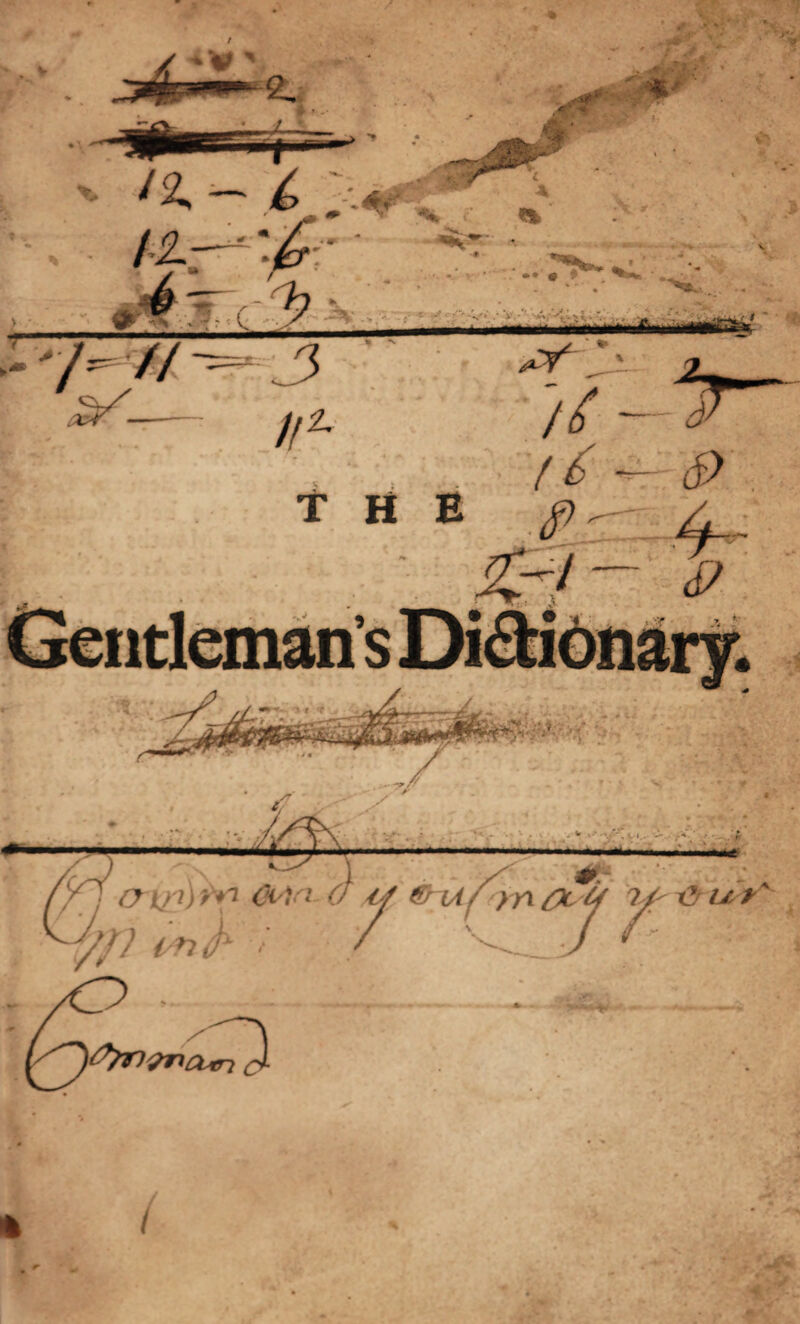 2
12 - 6
12 - 6
6 - 3
1 = 11 = 3
2
112
16 - 8
16 - 8
THE
8 - 4
2 - 1 - 8
Gentleman's Dictionary.
Command you may your
Mind
Command